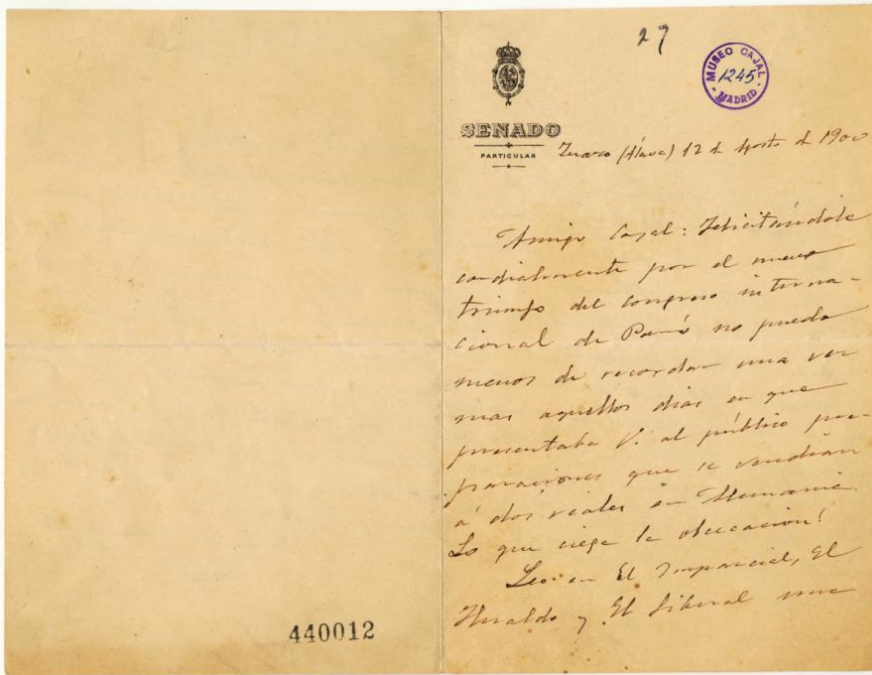 29
MUSEO CAJAL
1245
MADRID
SENADO
PARTICULAR
(Álava) 12 de Agosto de 1900
Amigo Cajal: Felicitándole
cordialmente por el nuevo
triunfo del congreso interna-
cional de París no puedo
menos de recordar una vez
mas aquellos dias en que
presentaba V. al público pre-
paraciones que se vendian
á dos reales en Alemania.
Lo que ciega la obcecación!
Leo en El Imparcial, El
Heraldo y El Liberal una
440012